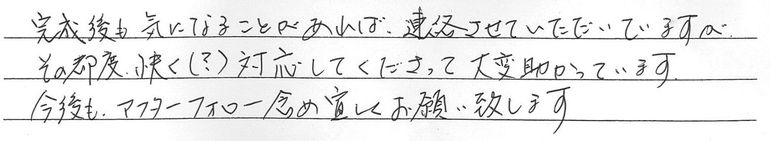 完成後も気になることがあれば、連絡させていただいていますが、
その都度、快く(?)対応してくださって大変助かっています。
今後も、アフターフォロー含め宜しくお願い致します